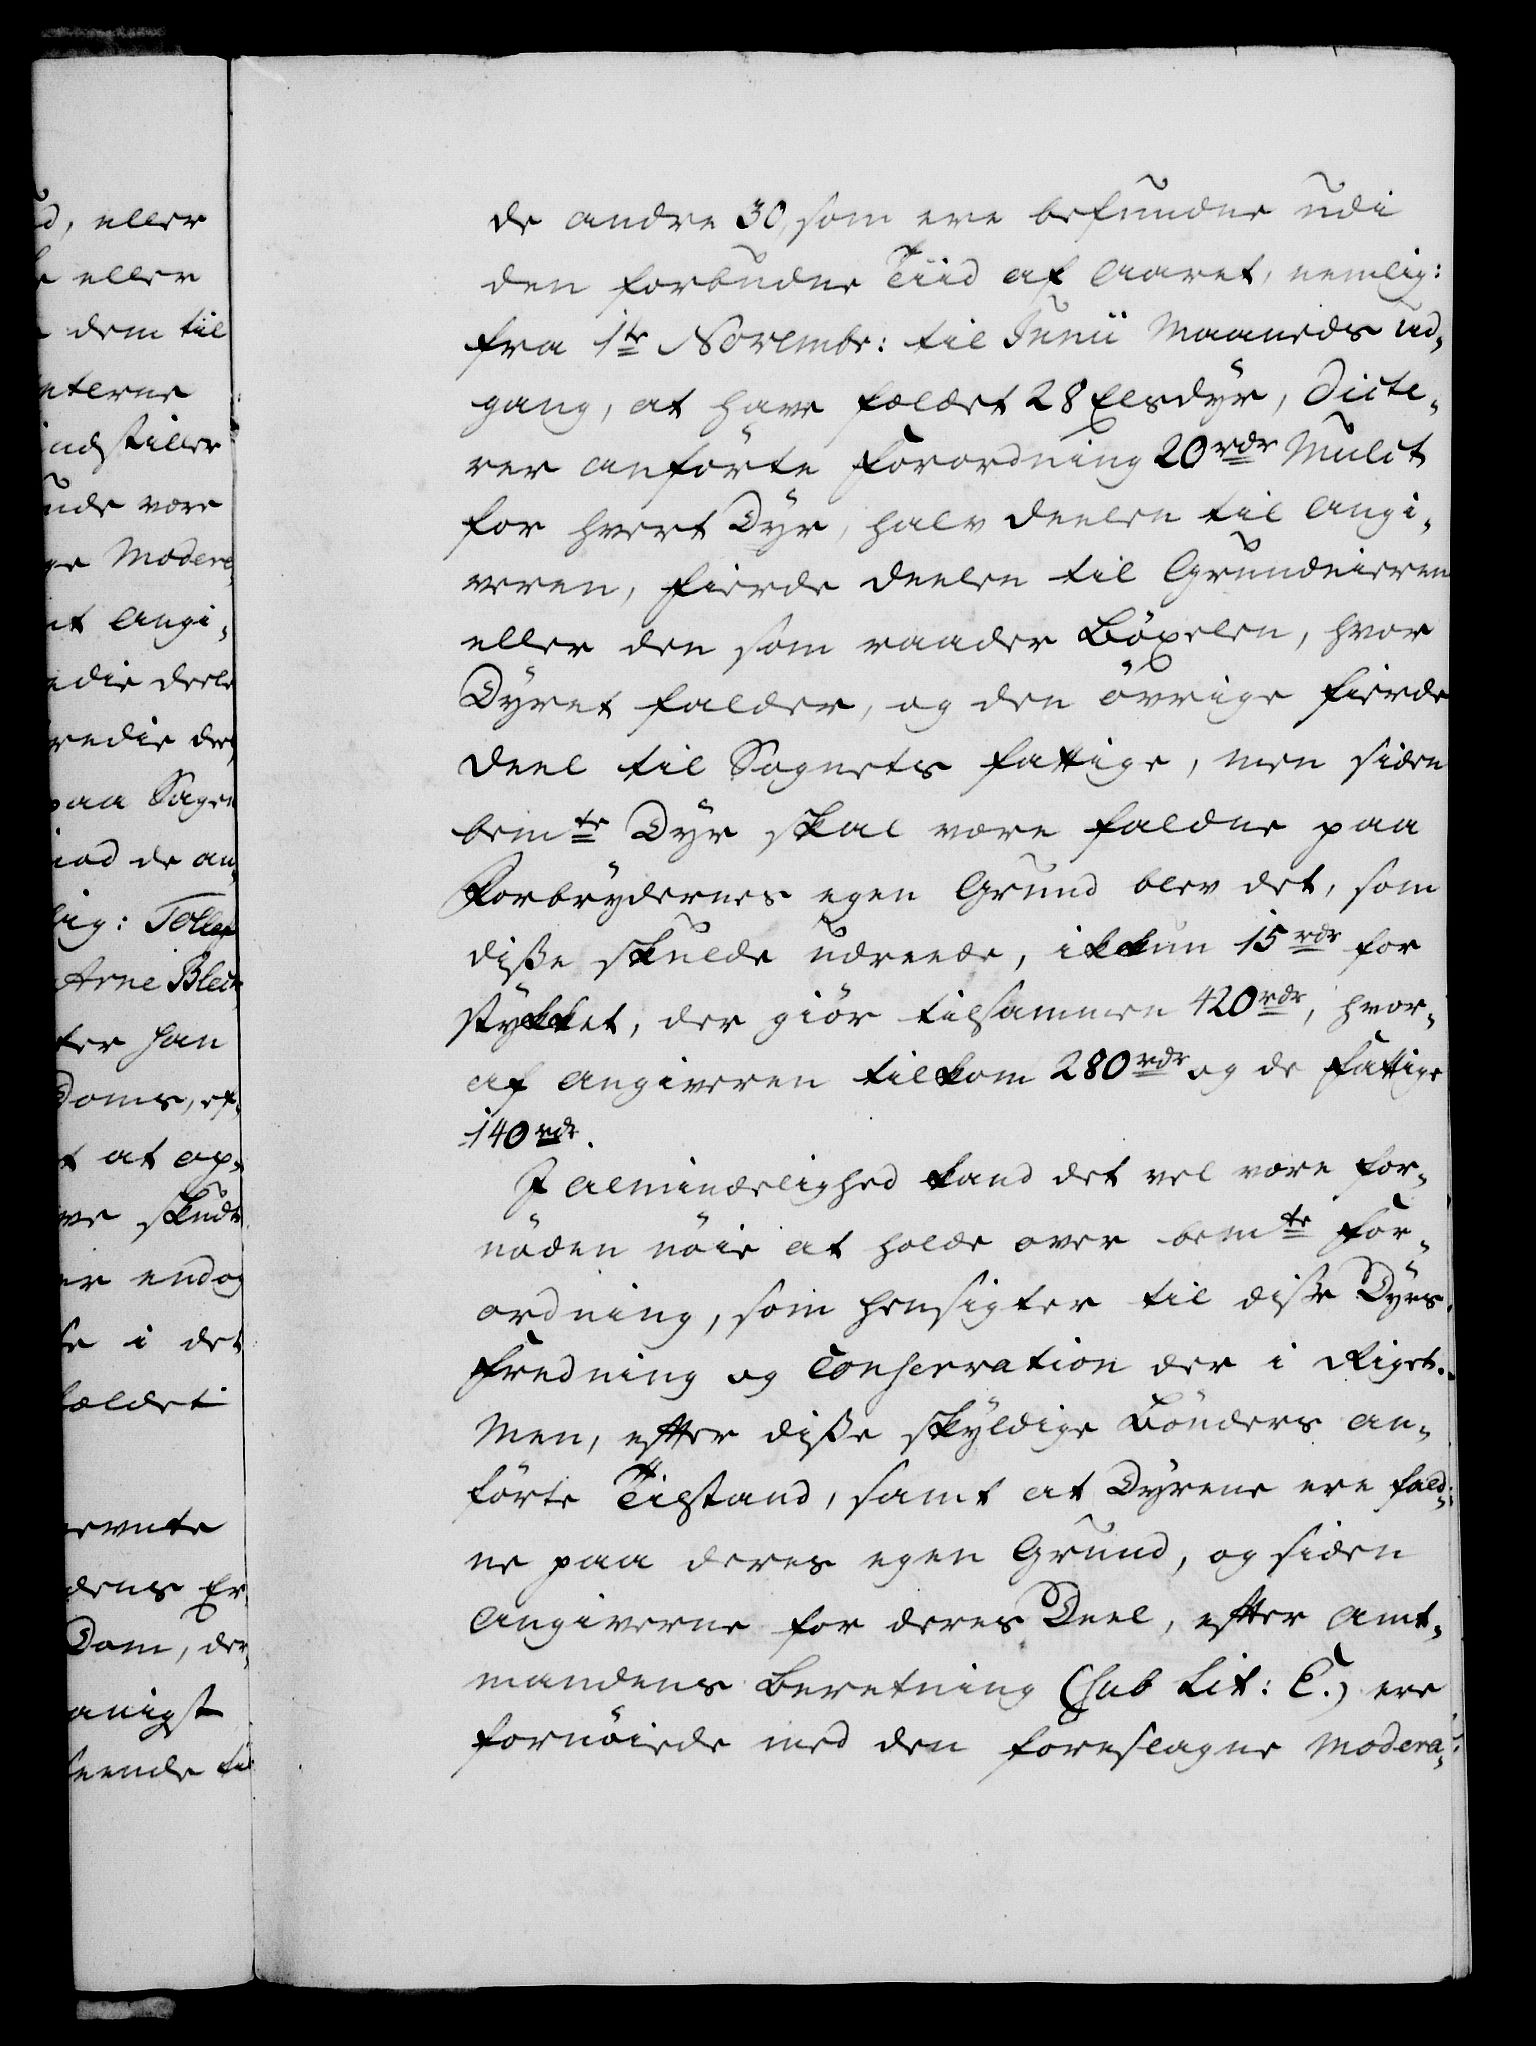 d, eller
eller
dem til
nterne
indstiller
unde være
ge Modera¬
nt Angi¬
edie deele
tredie dee
paa Sagen
iod de an¬
lig: Tollef
Arne Bleck
ter han
Doms, ef¬
t at op¬
ve skudt
er endog
se i det
fældet
nevnte
dens Er
Dom, der
anigst
seende til
de andre 30, som ere befundne udi
den forbudne Tiid af Aaret, nemlig:
fra 1te Novembr: til Junii Maaneds Ud¬
gang, at have fældet 28 Elsdyr, dicte¬
rer anførte Forordning 20 rdr Mulct
for hvert Dyr, halv Deelen til Angi¬
veren, fierde Deelen til Grundeieren
eller den som raader Böxelen, hvor
Dyret falder, og den övrige fierde
Deel til Sognets fattige, men siden
bemte Dyr skal være faldne paa
Forbrydernes egen Grund blev det, som
disse skulde udreede, ikkun 15 rdr for
stykket, der giör tilsammen 420 rdr, hvor¬
af Angiveren tilkom 280 rdr og de Fattige
140 rdr.
I Almindelighed kand det vel være for¬
nöden nöie at holde over bemte For¬
ordning, som hensigter til disse Dyrs
Fredning og Conservation der i Riget.
Men, efter disse skyldige Bönders an¬
förte Tilstand, samt at Dyrene ere fald¬
ne paa deres egen Grund, og siden
Angiverne for deres Deel, efter Amt¬
mandens Beretning (sub Lit: C.) ere
fornöiede med den foreslagne Modera¬